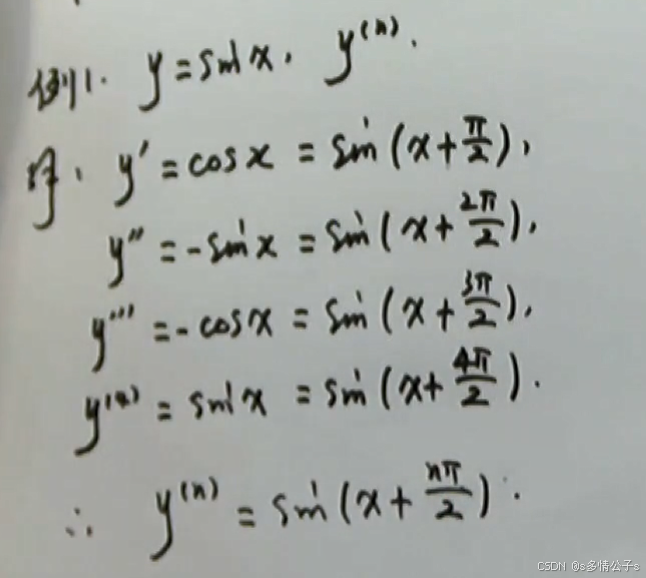 例1. y = sin x, y⁽ⁿ⁾.
解. y' = cos x = sin(x + π/2),
y'' = -sin x = sin(x + 2π/2),
y''' = -cos x = sin(x + 3π/2),
y⁽⁴⁾ = sin x = sin(x + 4π/2).
∴ y⁽ⁿ⁾ = sin(x + nπ/2).
CSDN @s多情公子s